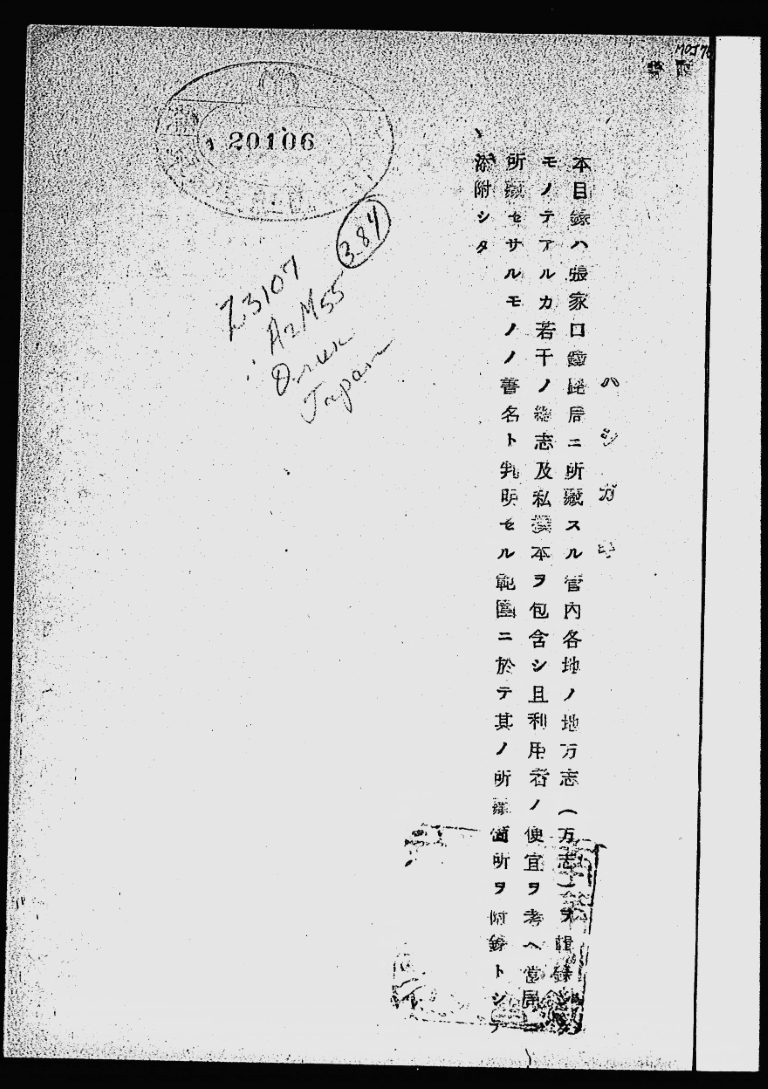 MOJ 76
20106
384
Z3107
.A2M55
Orien
Japan
ハシガキ
本目録ハ張家口鐵路局ニ所藏スル管内各地ノ地方志(方志)ヲ輯録シタ
モノテアルカ若干ノ雜志及私撰本ヲ包含シ且利用者ノ便宜ヲ考ヘ當局ニ
所藏セサルモノノ書名ト判明セル範圍ニ於テ其ノ所藏箇所ヲ附錄トシテ
添附シタ